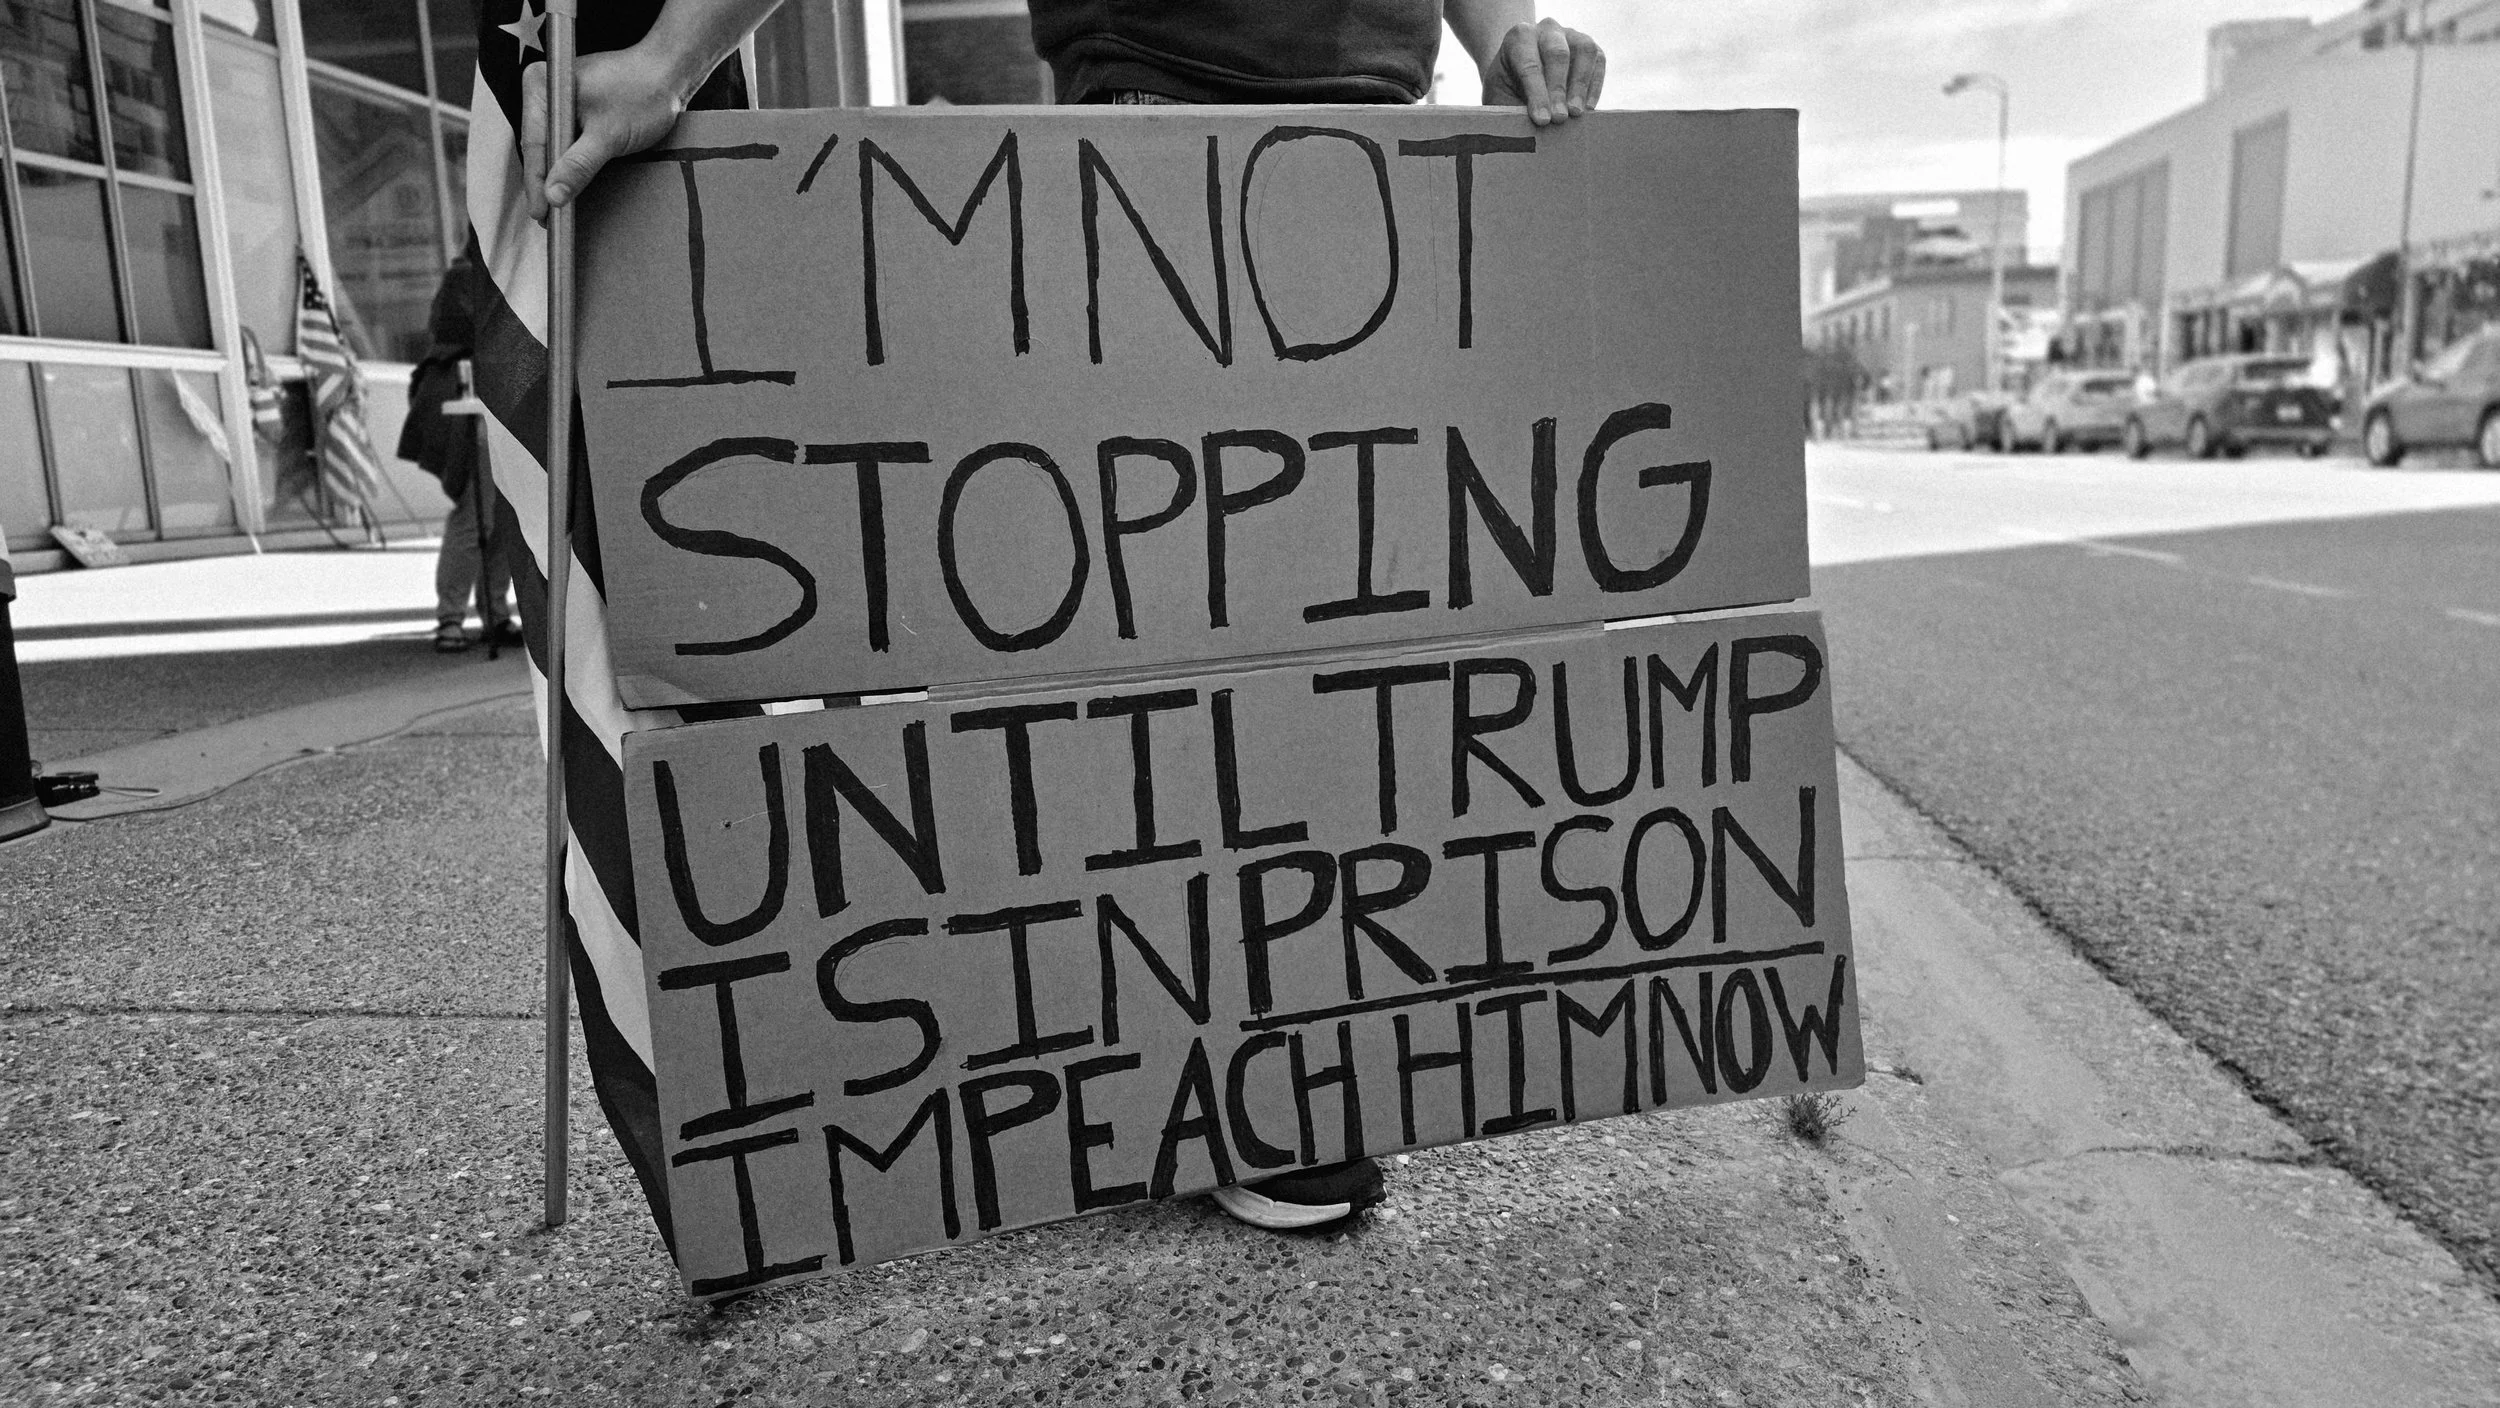 I'M NOT
STOPPING
UNTIL TRUMP
IS IN PRISON
IMPEACH HIM NOW